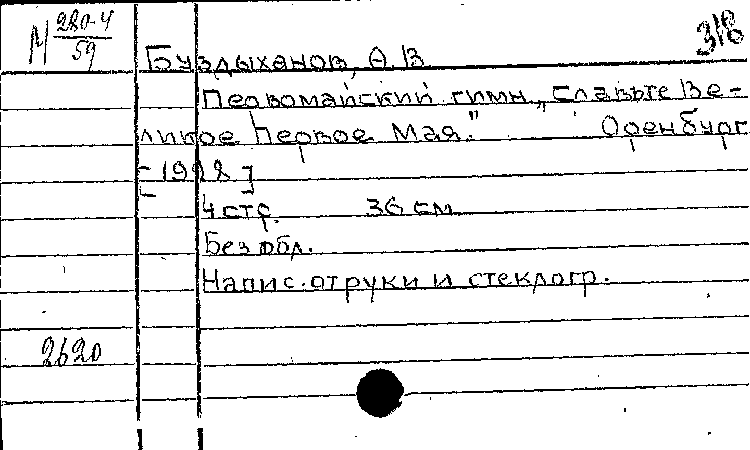 М 280-4
59
318
Буздыханов, А. В.
Первомайский гимн „Славьте Ве-
ликое Первое Мая." Оренбург
[19 ]
4 стр. 36 см
Без обл.
Напис. от руки и стеклогр.
2620